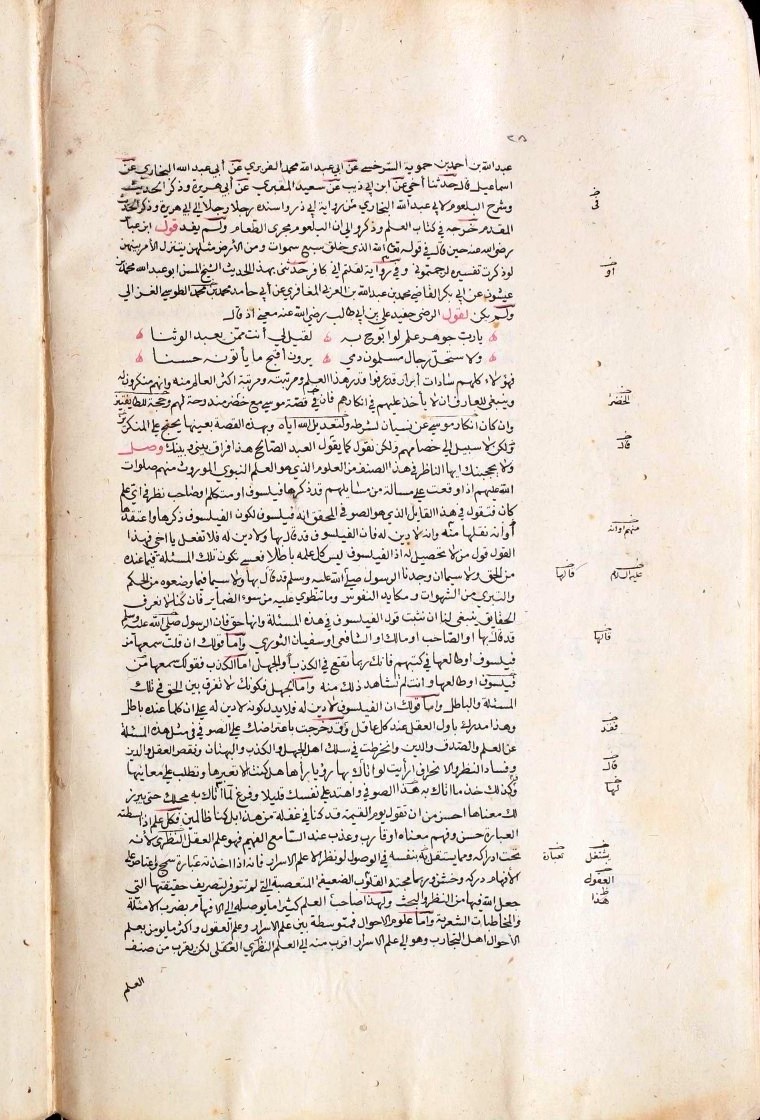 ٢٨
عبد الله بن أحمد بن حموية السرخسي عن ابي عبد الله محمد الفربري عن أبي عبد الله البخاري عن
اسماعيل قال حدثنا أخي عن ابن ابي ذيب عن سعيد المقبري عن أبي هريرة وذكر الحديث
وشرح البلعوم لابي عبد الله البخاري من رواية ابي ذر واسنده رجلا رجلا الي ابي هريرة وذكر
المقدم خرجه في كتاب العلم وذكروا ان البلعوم مجرى الطعام ولم يفد قول ابن عباس
رضي الله عنه حين قال في قوله الله الذي خلق سبع سموات ومن الارض مثلهن يتنزل الامر بينهن
لو ذكرت تفسيره لرجمتموني وفي رواية لقلتم اني كافر حدثني بهذا الحديث الشيخ المسن ابو عبد الله محمد بن
عيشون عن ابي بكر القاضي محمد بن عبد الله بن العربي المعافري عن أبي حامد محمد بن محمد الطوسي الغزالي
ولم يكن لقول الرضي حفيد علي بن ابي طالب رضي الله عنه معني اذ قال
يا رب جوهر علم لو ابوح به لقيل لي أنت ممن يعبد الوثنا
ولاستحل رجال مسلمون دمي يرون أقبح ما يأتونه حسنا
فهؤلاء كلهم سادات أبرار قد عرفوا قدر هذا العلم ومرتبته ومرتبة اكثر العالم منه وانهم منكرون له
وينبغي للعارف ان لا يأخذ عليهم في انكارهم فان في قصة موسي مع خضر مندوحة لهم وحجة للطايفتين
وان كان انكار موسي عن نسيان لشرطه ولتعديل الله اياه وبهذه القصة بعينها يحتج علي المنكرين
ولكن لا سبيل الي خصامهم ولكن نقول كما يقول العبد الصالح هذا فراق بيني وبينك وصل
ولا يحجبنك ايها الناظر في هذا الصنف من العلوم الذي هو العلم النبوي الموروث منهم صلوات
الله عليهم اذا وقعت علي مسالة من مسايلهم قد ذكرها فيلسوف او متكلم او صاحب نظر في اي علم
كان فتقول في هذا القايل الذي هو الصوفي المحقق انه فيلسوف لكون الفيلسوف ذكرها واعتقدها
أو أنه نقلها منه وانه لا دين له فان الفيلسوف قد قال بها ولا دين له فلا تفعل يا اخي فهذا
القول قول من لا تحصيل له اذ الفيلسوف ليس كل علمه باطلا فعسي تكون تلك المسئلة فيما عنده
من الحق ولا سيما ان وجدنا الرسول صلي الله عليه وسلم قد قال بها ولا سيما فيما وضعوه من الحكم
والتبري من الشهوات ومكايد النفوس وما تنطوي عليه من سوء الضماير فان كنا لا نعرف
الحقايق ينبغي لنا ان نثبت قول الفيلسوف في هذه المسئلة وانها حق فان الرسول صلى الله عليه وسلم
قد قال بها او الصاحب او مالك او الشافعي او سفيان الثوري وأما قولك ان قلت سمعها من
فيلسوف او طالعها في كتبهم فانك ربما تقع في الكذب والجهل اما الكذب فقولك سمعها من
فيلسوف او طالعها وانت لم تشاهد ذلك منه واما الجهل فكونك لا تفرق بين الحق في تلك
المسئلة والباطل واما قولك ان الفيلسوف لا دين له فلا يدل كونه لا دين له علي ان كلما عنده باطل
وهذا مدرك باول العقل عند كل عاقل وقد خرجت باعتراضك علي الصوفي في مثل هذه المسئلة
عن العلم والصدق والدين وانخرطت في سلك اهل الجهل والكذب والبهتان ونقص العقل والدين
وفساد النظر والانحراف أرأيت لو اتاك بها رؤيا رآها هل كنت الا تعبرها وتطلب علي معانيها
فكذلك خذ ما اتاك به هذا الصوفي واهتد علي نفسك قليلا وفرغ لما أتاك به محلك حتى يبرز
لك معناها احسن من ان تقول يوم القيمة قد كنا في غفلة من هذا بل كنا ظالمين فكل علم اذا بسطته
العبارة حسن وفهم معناه او قارب وعذب عند السامع الفهم فهو علم العقل النظري لأنه
تحت ادراكه ومما يستقل به بنفسه في الوصول لو نظر الا علم الاسرار فانه اذا اخذته عبارة سمج واعتاص علي
الافهام دركه وخشن وربما مجته القلوب الضعيفة المتعصبة التي لم تتوفر لتصريف حقيقتها التي
جعل الله فيها من النظر والبحث ولهذا صاحب العلم كثيرا ما يوصله الي الافهام بضرب الامثلة
والمخاطبات الشعرية واما علوم الاحوال فمتوسطة بين علم الاسرار وعلم العقول واكثر ما يومن بعلم
الاحوال اهل التجارب وهو الي علم الاسرار اقرب منه الي العلم النظري العقلي لكن يقرب من صنف
العلم
في
او
الخضر
قال
منهم او انه
عليه السلام
قالها
قالها
فقد
قال
لها
يشتغل
عبارة
العقول
هذا